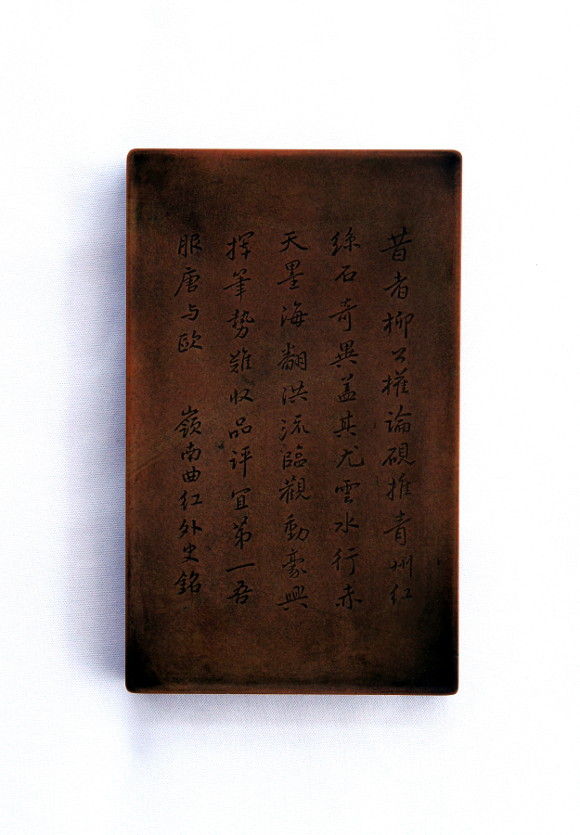 昔者柳公攉論硯推青州紅
絲石奇異蓋其尤雲水行赤
天墨海翻洪流臨觀動豪興
揮筆勢難收品評宜第一吾
服唐与歐
嶺南曲紅外史銘